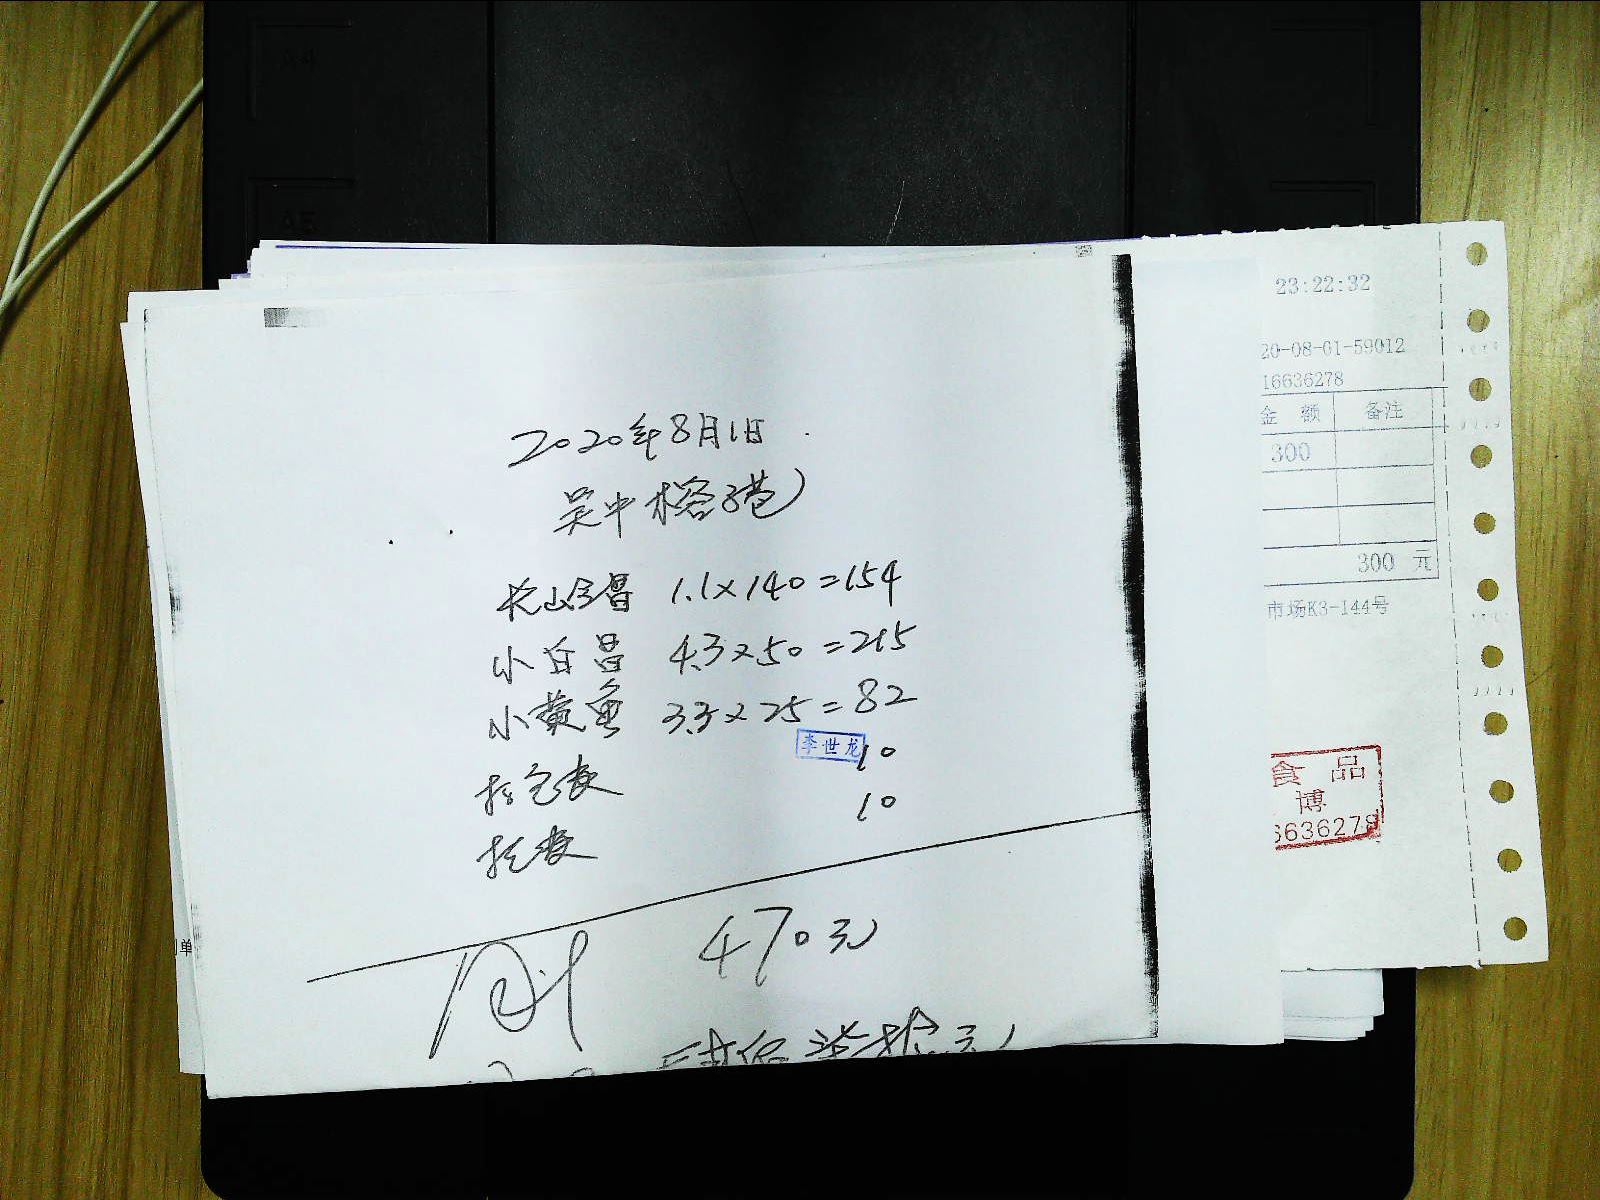 2020年8月1日
吴中榕港
长山金昌 1.1×140=154
小白昌 4.3×50=215
小黄鱼 3.3×25=82
李世龙
打包费 10
托费 10
470元
23:22:32
20-08-01-59012
16636278
金 额 备注
300
300 元
市场K3-144号
食 品
博
6636278
单
A4
A5